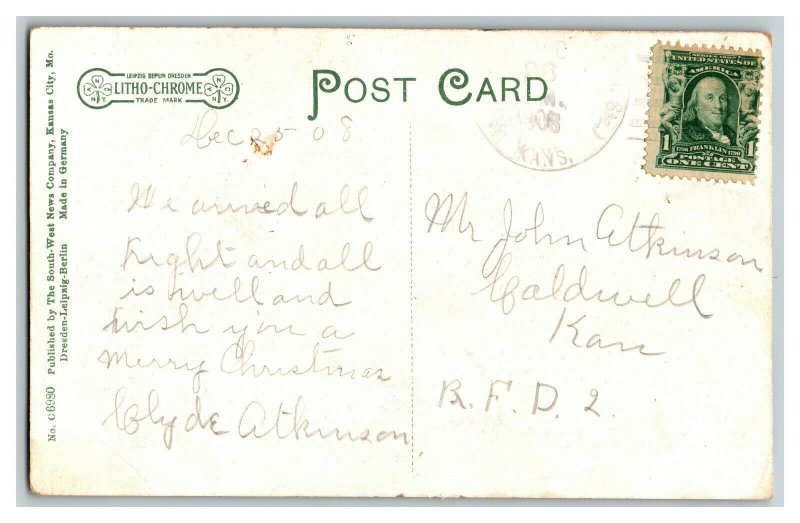 LEIPZIG BERLIN DRESDEN
LITHO-CHROME
TRADE MARK
N Y
N Y
POST CARD
KANS.
SERIES 1902
UNITED STATES OF
AMERICA
1706 FRANKLIN 1790
1 1
POSTAGE
ONE CENT
Dec 25 08
We arived all
Right and all
is well and
wish you a
Merry Christmas
Clyde Atkinson
Mr John Atkinson
Caldwell
Kan
R.F.D. 2.
No. C6980 Published by The South-West News Company, Kansas City, Mo.
Dresden-Leipzig-Berlin Made in Germany